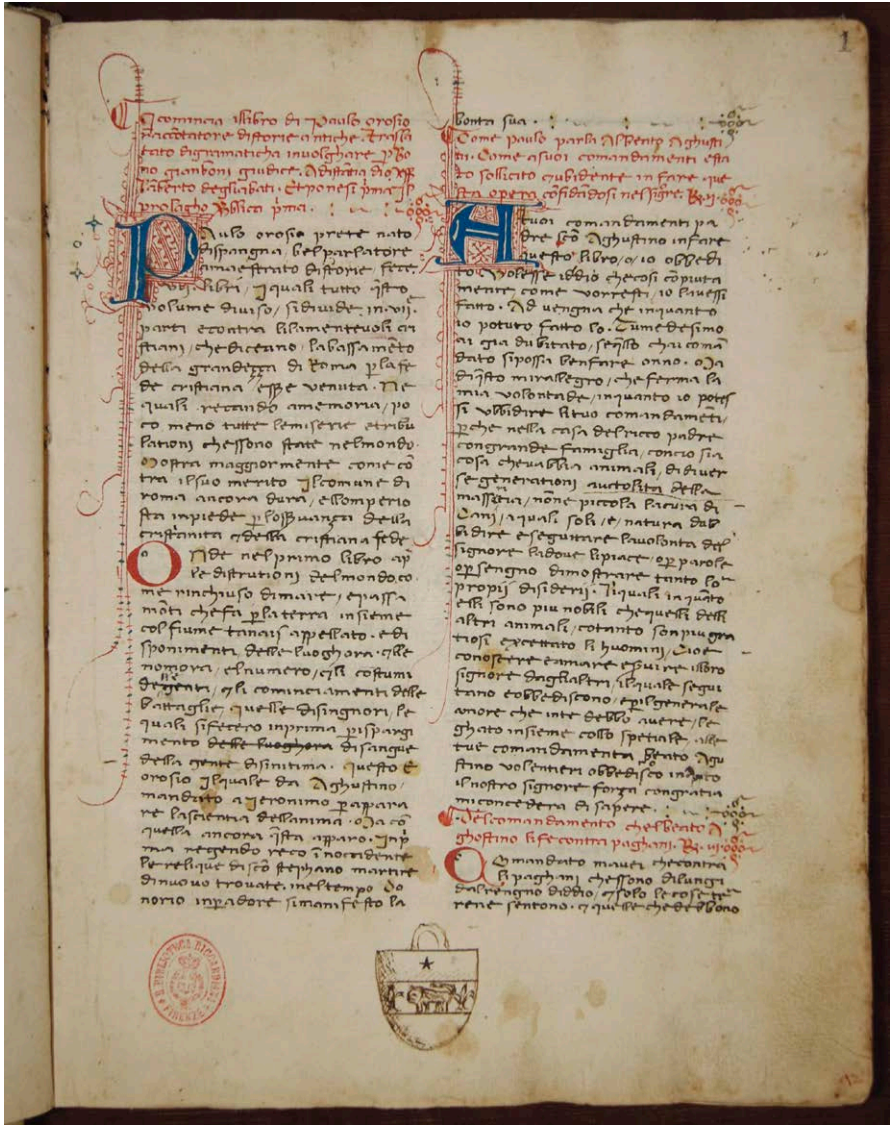 1
Icomincia illibro di Paulo orosio
raccōtatore distorie antiche. Trasla
tato digramaticha involghare p Bo
no gianboni giudice. Adistāzia di
Lāberto degliabati. Et ponesi pͥma il
prolagho Rublica pͥma.
PAulo orosio prete nato
dispangna, bel parlatore
amaestrato distorie, fece
vii libri, i quali tutto q̄sto
volume diviso, si divide in .vii.
parti e contra li lamentevoli cri
stiani, che diceano, labassamēto
della grandezza di Roma p la fe
de cristiana esse venuta. Ne
quali recando amemoria, po
co meno tutte lemiserie etribu
lationi chessono state nelmondo.
Mostra maggiormente come cō
tra ilsuo merito ilcomune di
roma ancora dura, ellomperio
sta inpiede p losservanza della
cristianita della cristiana fede
ONde nel primo libro ap̄
le distrutioni delmondo, co
me rinchiuso dimare, e passa
mōti chefa p laterra insieme
col fiume tanais appellato. edi
sponimenti delle luoghora. elle
nomora, elnumero, li costumi
degenti, li cominciamenti delle
battaglie, quelle disingnori, le
quali sifecero inprima p ispargi
mento delle luoghora disangue
della gente disinitima. Questo e
orosio ilquale da Aghustino,
mandato a Jeronimo p appara
re lascientia dellanima. Ma cō
quella ancora q̄sta apparo. Inp̄
ma regendo reco inoccidente
lerelique discō stephano martire
dinuovo trovate, ineltempo Do
norio inpadore simanifesto la
bonta sua.
Come paulo parla Albento Aghusti
no. Come asuoi comandamenti esta
to sollicito ubidente in fare que
sta opera cōfidandosi nelsigre. R. ii.
ATuoi comandamenti pa
dre scō Aghustino infare
questo libro, o io obbedi
to Volesse iddio checosi cōpiuta
mente come vorresti, io lavessi
fatto. Ad vengna che inquanto
io potuto fatto lo. Tumedesimo
ai gia dubitato, seq̄llo chai comā
dato sipossa benfare onno. Ma
diq̄sto mirallegro, che ferma la
mia volontade, inquanto io potes
si ubbidire lituo comandamēti,
p̄che nella casa delricco padre
congrande famiglia, concio sia
cosa chevabbia animali, didiver
segenerationi auctolita della
masseria, nōne piccola lacura di
Cani, aquali soli, e, natura dub
bidire eseguitare lavolonta del
signore ladove lipiace, o p parole
o p sengno dimostrare tanto lor
propii disiderii. Iquali inquāto
elli sono piu nobili chequelli delli
altri animali, cotanto sonpiugra
tiosi exccettato li huomini, Cioe
conoscere eamare eservire illoro
signore daglialtri, ilquale segui
tano eobbediscono, epilgenerale
amore che inte debbo avere, le
ghato insieme collo spetiale, alle
tue comandamenta beato Agu
stino volentieri obbedisco inq̄to
ilnostro signore forza congratia
miconcedera di sapere.
Delcomandamento chelbeato A
ghostino li fe contra paghani. R. iii.
COmandato mavei checontra
li paghani chessono dilungi
dalrengno diddio, solo le cose te
rene sentono. quelle chedebbono
R. BIBLIOTECA RICCARDIANA
FIRENZE